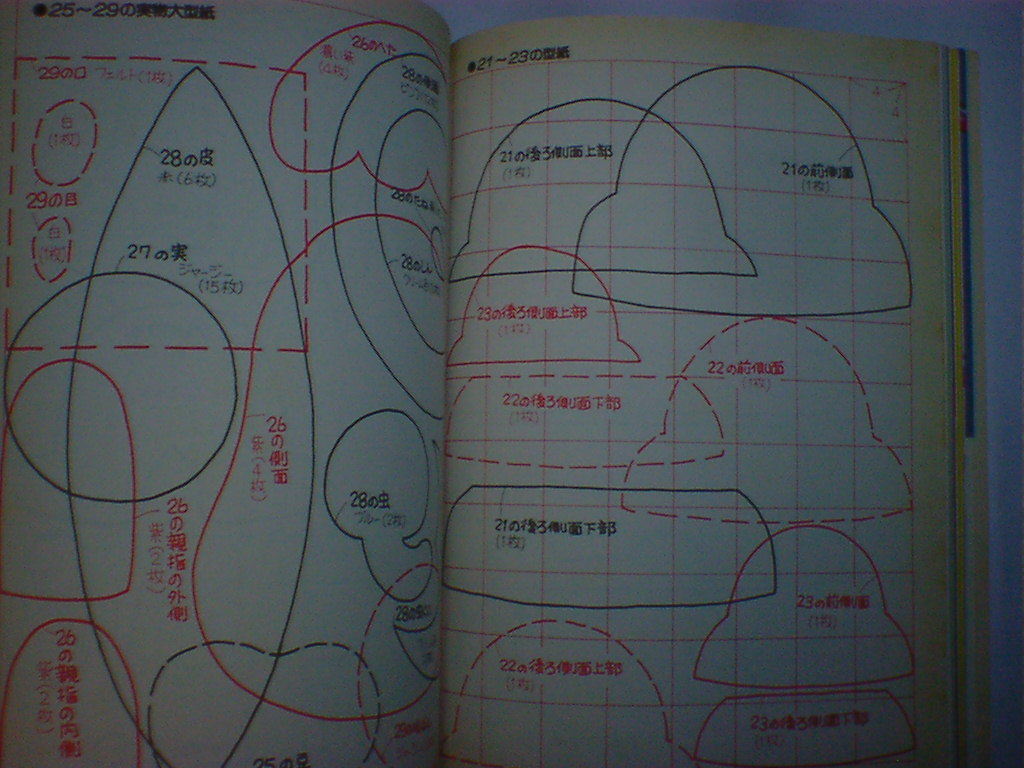 ●25〜29の実物大型紙
29の口 フェルト(1枚)
白
(1枚)
29の目
白
(1枚)
28の皮
赤(6枚)
27の実
ジャージー
(15枚)
26のヘタ
(4枚)
28のしん
26の側面
紫(4枚)
28の虫
ブルー(2枚)
26の親指の外側
紫(2枚)
26の親指の内側
紫(2枚)
25の
●21〜23の型紙
4
4
21の後ろ側面上部
(1枚)
21の前側面
(1枚)
23の後ろ側面上部
(1枚)
22の前側面
(1枚)
22の後ろ側面下部
(1枚)
21の後ろ側面下部
(1枚)
23の前側面
(1枚)
22の後ろ側面上部
(1枚)
23の後ろ側面下部
(1枚)